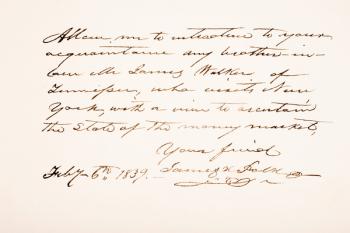 Allow me to introduce to your
acquaintance my brother-in-
law Mr James Walker of
Tennessee, who visits New
York, with a view to ascertain
the state of the money market,
Your friend
Feby 6th 1839. James K Polk